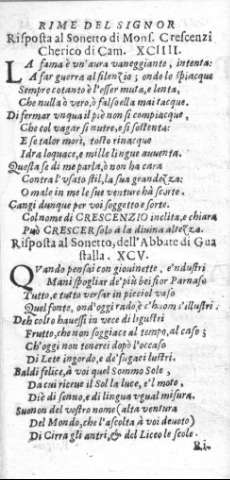 RIME DEL SIGNOR
Risposta al Sonetto di Mons. Crescenzi
Cherico di Cam. XCIIII.
LA fama è vn'aura vaneggiante, intenta:
A far guerra al silenzio; onde lo spiacque
Sempre cotanto è l'esser muta, e lenta,
Che nulla ò vero, ò falso ella mai tacque.
Di fermar vnqua il piè non si compiacque,
Che col vagar si nutre, e si sostenta:
E se talor morì, tosto rinacque
Idra loquace, e mille lingue auuenta.
Questa se di me parla, ò non ha cura
Contra l'vsato stil, la sua grandezza:
O male in me le sue venture hà scorte.
Cangi dunque per voi soggetto e sorte.
Col nome di CRESCENZIO inclita, e chiara
Può CRESCER solo à la diuina altezza.
Risposta al Sonetto, dell'Abbate di Gua
stalla. XCV.
QVando pensai con giouinette, e'ndustri
Mani spogliar de' più bei fior Parnaso
Tutto, e tutto versar in picciol vaso
Quel fonte, ond'oggi rado è c'huom s'illustri.
Deh colto hauess'i in vece di ligustri
Frutto, che non soggiace al tempo, al caso;
Ch'oggi non temerei dopò l'occaso
Di Lete ingordo, e de' fugaci lustri.
Baldi felice, à voi quel Sommo Sole,
Da cui riceue il Sol la luce, e'l moto,
Diè di senno, e di lingua vgual misura.
Suonon del vostro nome (alta ventura
Del Mondo, che l'ascolta à voi deuoto)
Di Cirra gli antri, & del Liceo le scole.